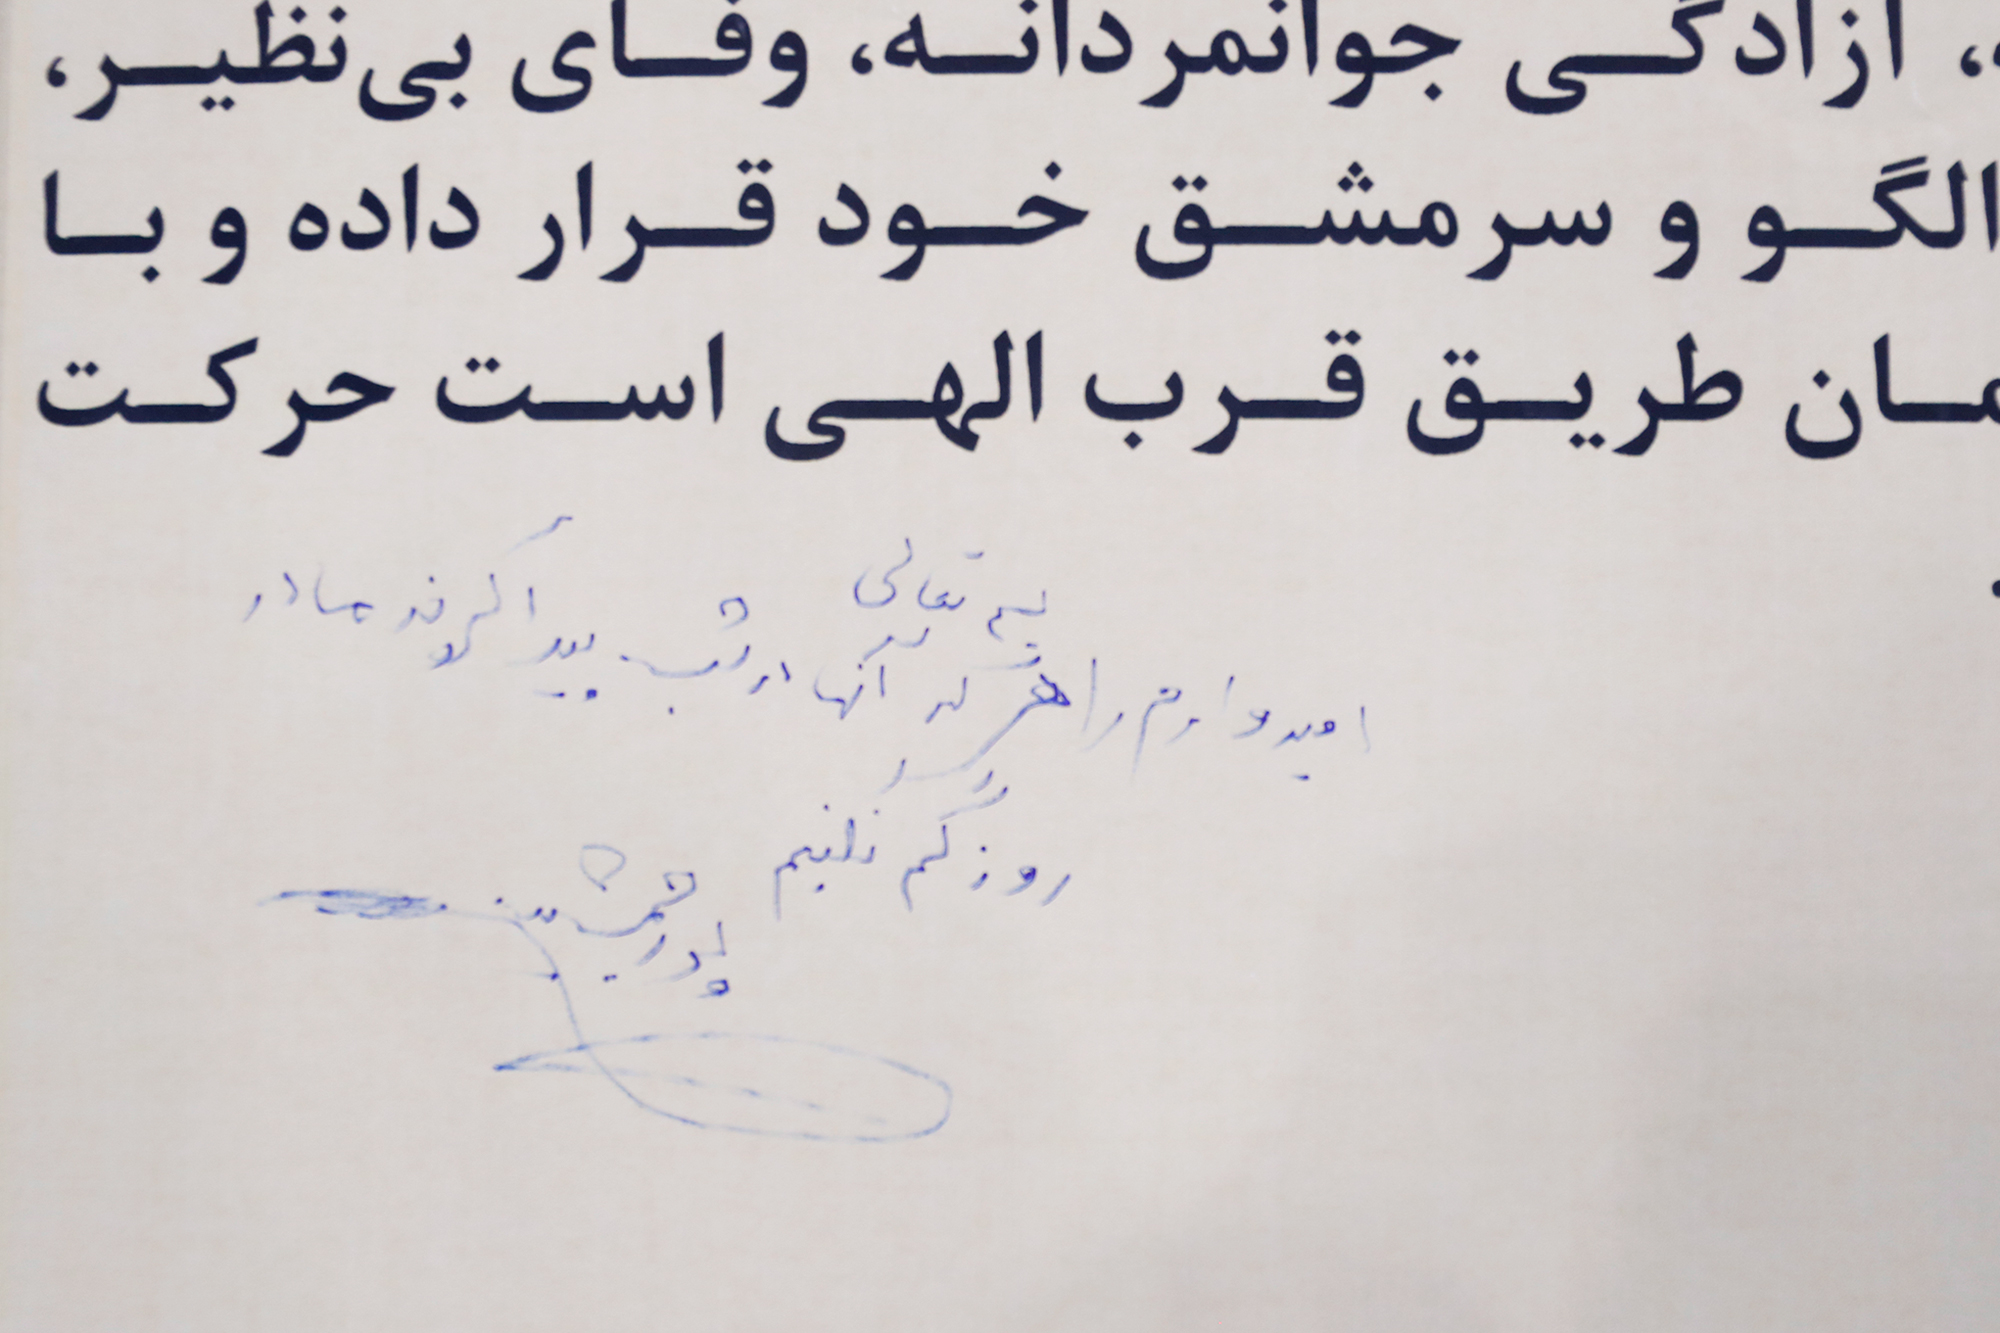 ، آزادگی جوانمردانه، وفای بی‌نظیر،
الگو و سرمشق خود قرار داده و با
مان طریق قرب الهی است حرکت
بسم تعالی
امیدوارم راهی که آنها در شب پیدا کردند ما در
روز گم نکنیم